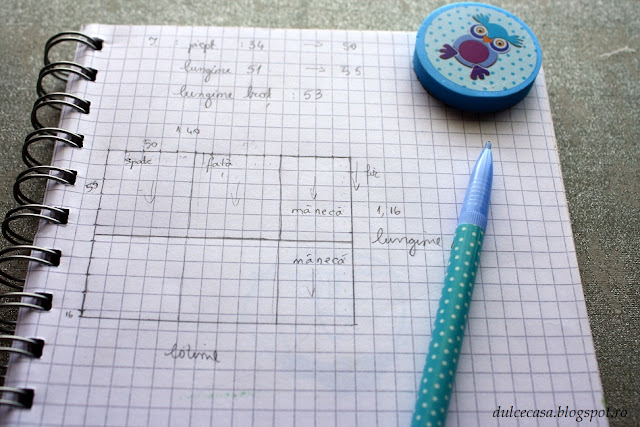 J : piept : 34 → 50
lungime 51 → 55
lungime braț : 53
1 40
50
spate față fir
55
mânecă 1,16
lungime
mânecă
16
lățime
dulcecasa.blogspot.ro